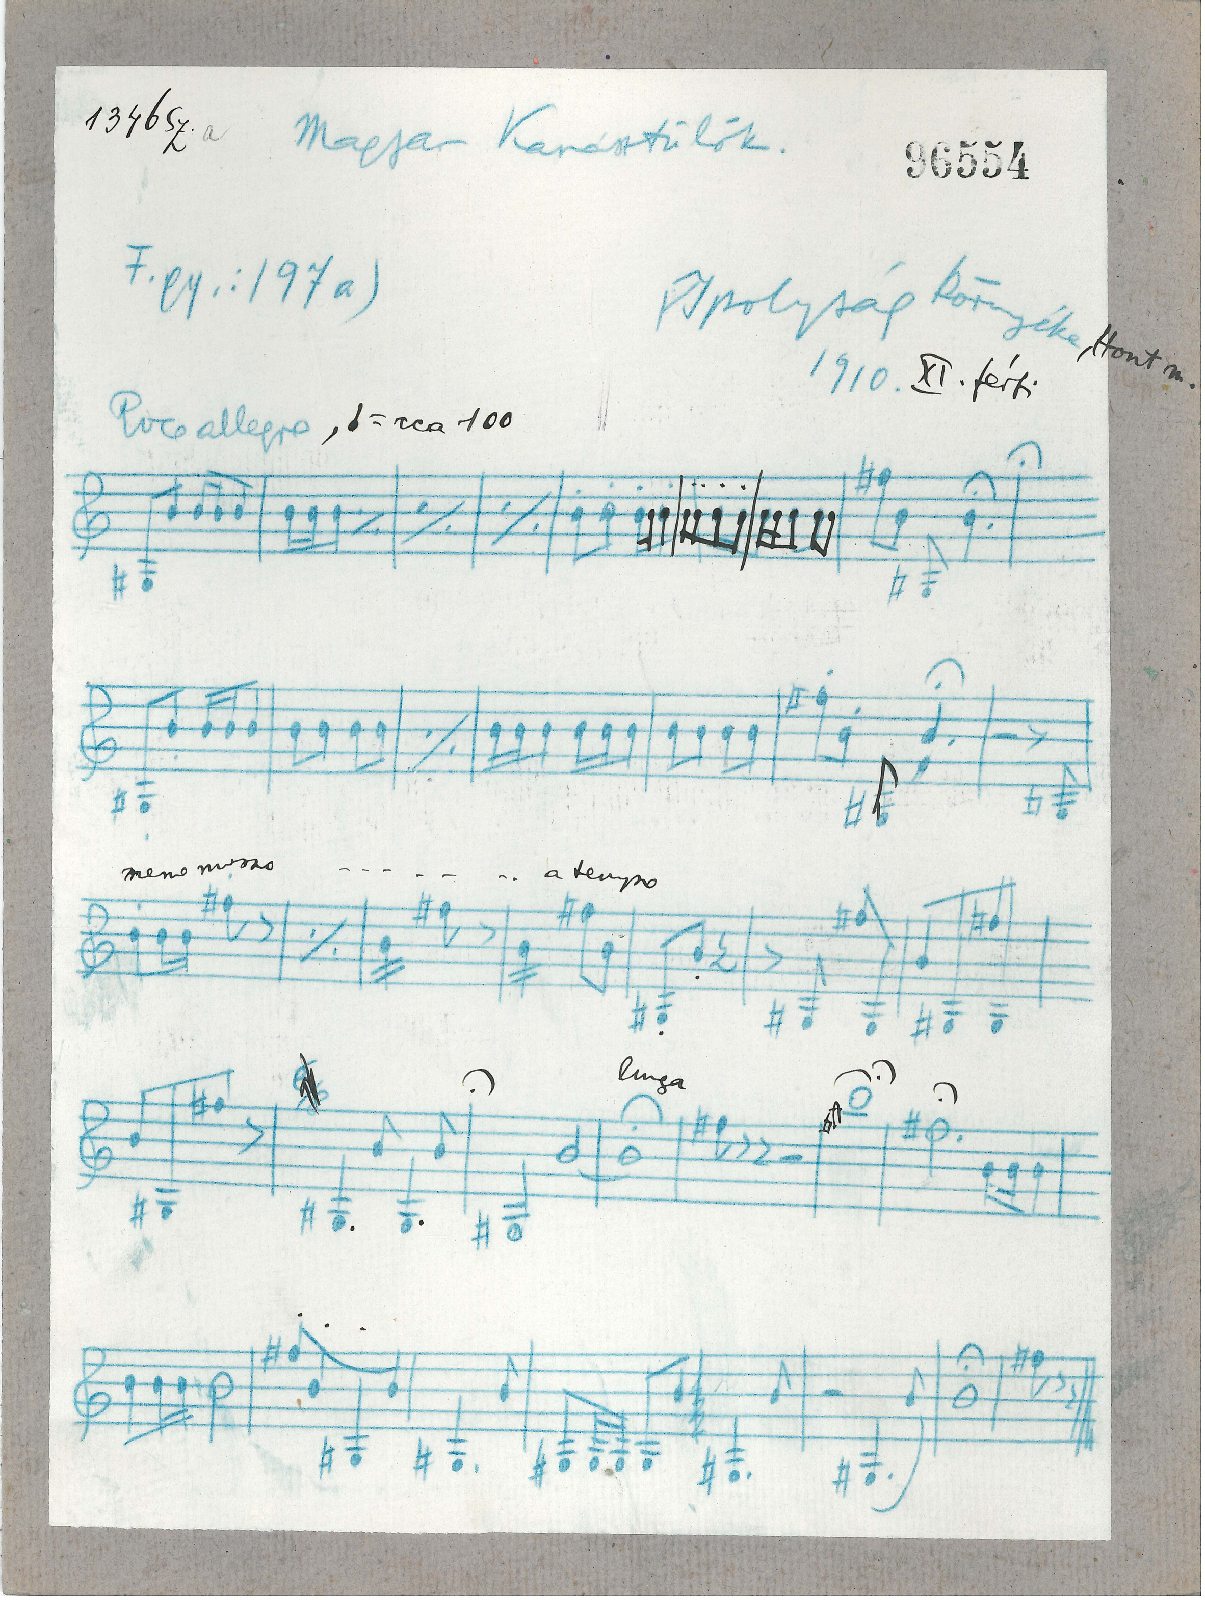 1346 Sz. a
Magyar Kanásztülök.
96554
F. gy.: 197a)
Ipolyság környéke, Hont m.
1910. XI. férfi
Poco allegro, = cca 100
meno mosso - - - - - - - a tempo
lunga